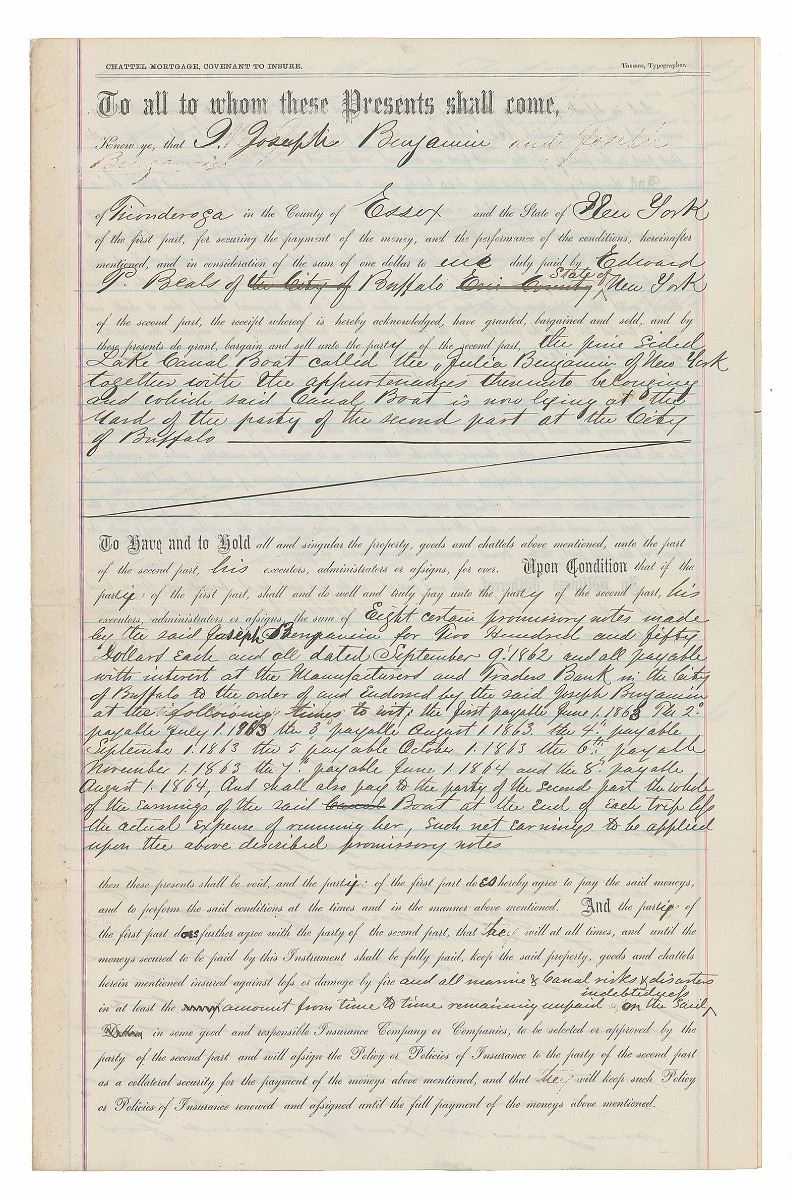 CHATTEL MORTGAGE, COVENANT TO INSURE. Thomas, Typographer.
To all to whom these Presents shall come,
Know ye, that I, Joseph Benjamin and Joseph
Benjamin
of Ticonderoga in the County of Essex and the State of New York
of the first part, for securing the payment of the money, and the performance of the conditions, hereinafter
mentioned, and in consideration of the sum of one dollar to me duly paid by Edward
P. Beals of the City of Buffalo Erie County State of New York
of the second part, the receipt whereof is hereby acknowledged, have granted, bargained and sold, and by
these presents do grant, bargain and sell unto the party of the second part, the pine sided
Lake Canal Boat called the "Julia Benjamin of New York
together with the appurtenances thereunto belonging
and which said Canal Boat is now lying at the
Yard of the party of the second part at the City
of Buffalo
To Have and to Hold all and singular the property, goods and chattels above mentioned, unto the part
of the second part, his executors, administrators or assigns, for ever. Upon Condition that if the
party of the first part, shall and do well and truly pay unto the party of the second part, his
executors, administrators or assigns, the sum of Eight certain promissory notes made
by the said Joseph Benjamin for Two Hundred and fifty
Dollars Each and all dated September 9. 1862 and all payable
with interest at the Manufacturers and Traders Bank in the City
of Buffalo to the order of and Endorsed by the said Joseph Benjamin
at the following times to wit: the first payable June 1. 1863 The 2d
payable July 1. 1863 the 3d payable August 1. 1863. the 4th payable
September 1. 1863 the 5 payable October 1. 1863 the 6th payable
November 1. 1863 the 7th payable June 1. 1864 and the 8th payable
August 1. 1864, And shall also pay to the party of the second part the whole
of the Earnings of the said Canal Boat at the End of Each trip less
the actual Expense of running her, Such net Earnings to be applied
upon the above described promissory notes
then these presents shall be void, and the party of the first part does hereby agree to pay the said moneys,
and to perform the said conditions at the times and in the manner above mentioned. And the party of
the first part does further agree with the party of the second part, that he will at all times, and until the
moneys secured to be paid by this Instrument shall be fully paid, keep the said property, goods and chattels
herein mentioned insured against loss or damage by fire and all marine & Canal risks & disasters
in at least the amount from time to time remaining unpaid on the said indebtedness
in some good and responsible Insurance Company or Companies, to be selected or approved by the
party of the second part and will assign the Policy or Policies of Insurance to the party of the second part
as a collateral security for the payment of the moneys above mentioned, and that he will keep such Policy
or Policies of Insurance renewed and assigned until the full payment of the moneys above mentioned.